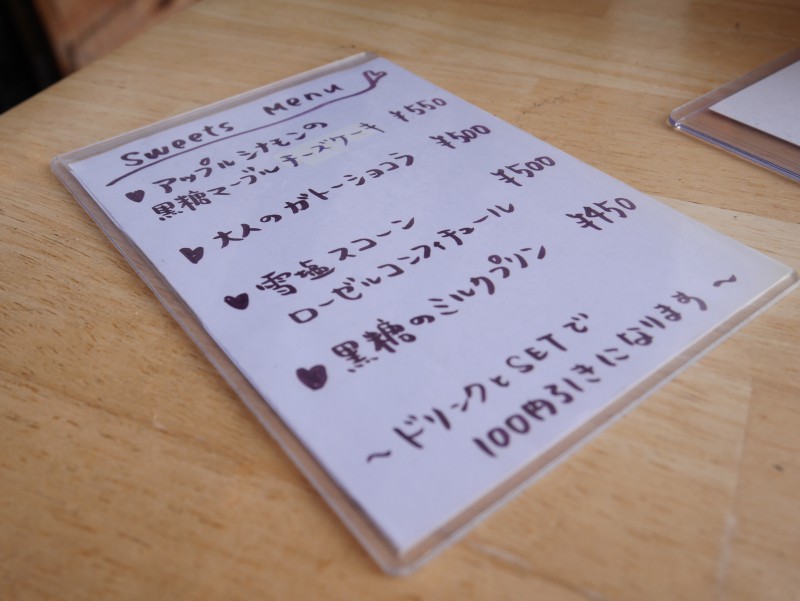 Sweets Menu
アップルシナモンの
黒糖マーブルチーズケーキ ¥550
大人のガトーショコラ ¥500
雪塩スコーン ¥500
ローゼルコンフィチュール
黒糖のミルクプリン ¥450
～ドリンクとSETで
100円引きになります～